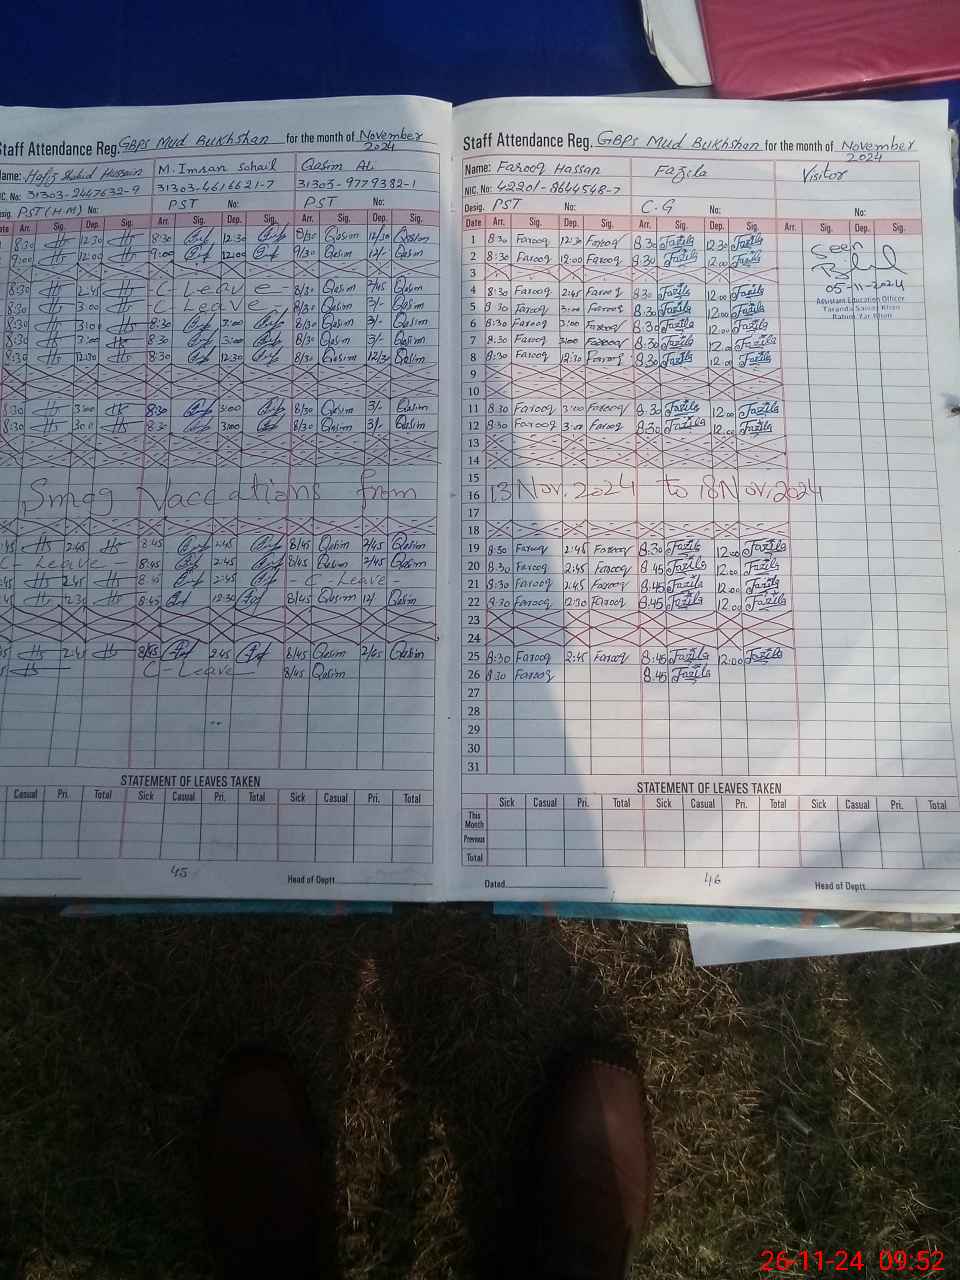 Staff Attendance Reg. GBPS Mud Bukhshan for the month of November 2024
Name: Hafiz Shahid Hussain M. Imran Sohail Qasim Ali
NIC. No: 31303-2447632-9 31303-4616621-7 31303-9779382-1
Desig. PST (H.M) No: PST No: PST No:
Arr. Sig. Dep. Sig. Arr. Sig. Dep. Sig. Arr. Sig. Dep. Sig.
8:30 12:30 8:30 12:30 8/30 Qasim 12/30 Qasim
9:00 12:00 9:00 12:00 9/30 Qasim 12/- Qasim
8:30 2:45 - C - Leave - 8/30 Qasim 2/45 Qasim
8:30 3:00 C Leave - 8/30 Qasim 3/- Qasim
8:30 3:00 8:30 3:00 8/30 Qasim 3/- Qasim
8:30 3:00 8:30 3:00 8/30 Qasim 3/- Qasim
8:30 12:30 8:30 12:30 8/30 Qasim 12/30 Qasim
8:30 3:00 8:30 3:00 8/30 Qasim 3/- Qasim
8:30 3:00 8:30 3:00 8/30 Qasim 3/- Qasim
Smog Vaccations from
:45 2:45 8:45 2:45 8/45 Qasim 2/45 Qasim
C - Leave - 8:45 2:45 8/45 Qasim 2/45 Qasim
:45 2:45 8:45 2:45 - C - Leave -
:45 8:45 12:30 8/45 Qasim 12/ Qasim
2:45 8/45 2:45 8/45 Qasim 2/45 Qasim
C - Leave 8/45 Qasim
STATEMENT OF LEAVES TAKEN
Casual Pri. Total Sick Casual Pri. Total Sick Casual Pri. Total
45
Head of Deptt.
Staff Attendance Reg. GBPS Mud Bukhshan for the month of November 2024
Name: Farooq Hassan Fazila Visitor
NIC. No: 42201-8644548-7
Desig. PST C.G No: No:
Date Arr. Sig. Dep. Sig. Arr. Sig. Dep. Sig. Arr. Sig. Dep. Sig.
1 8:30 Farooq 12:30 Farooq 8:30 Fazila 12:30 Fazila
2 8:30 Farooq 12:00 Farooq 8:30 Fazila 12:00 Fazila
3
4 8:30 Farooq 2:45 Farooq 8:30 Fazila 12:00 Fazila
5 8:30 Farooq 3:00 Farooq 8:30 Fazila 12:00 Fazila
6 8:30 Farooq 3:00 Farooq 8:30 Fazila 12:00 Fazila
7 8:30 Farooq 3:00 Farooq 8:30 Fazila 12:00 Fazila
8 8:30 Farooq 12:30 Farooq 8:30 Fazila 12:00 Fazila
9
10
11 8:30 Farooq 3:00 Farooq 8:30 Fazila 12:00 Fazila
12 8:30 Farooq 3:00 Farooq 8:30 Fazila 12:00 Fazila
13
14
15
16 13 Nov. 2024 to 18 Nov. 2024
17
18
19 8:30 Farooq 2:45 Farooq 8:30 Fazila 12:00 Fazila
20 8:30 Farooq 2:45 Farooq 8:45 Fazila 12:00 Fazila
21 8:30 Farooq 2:45 Farooq 8:45 Fazila 12:00 Fazila
22 8:30 Farooq 12:30 Farooq 8:45 Fazila 12:00 Fazila
23
24
25 8:30 Farooq 2:45 Farooq 8:45 Fazila 12:00 Fazila
26 8:30 Farooq 8:45 Fazila
27
28
29
30
31
Seen
05-11-2024
Assistant Education Officer
Rahim Yar Khan
STATEMENT OF LEAVES TAKEN
Sick Casual Pri. Total Sick Casual Pri. Total Sick Casual Pri. Total
This Month
Previous
Total
Dated
46
Head of Deptt.
26-11-24 09:52